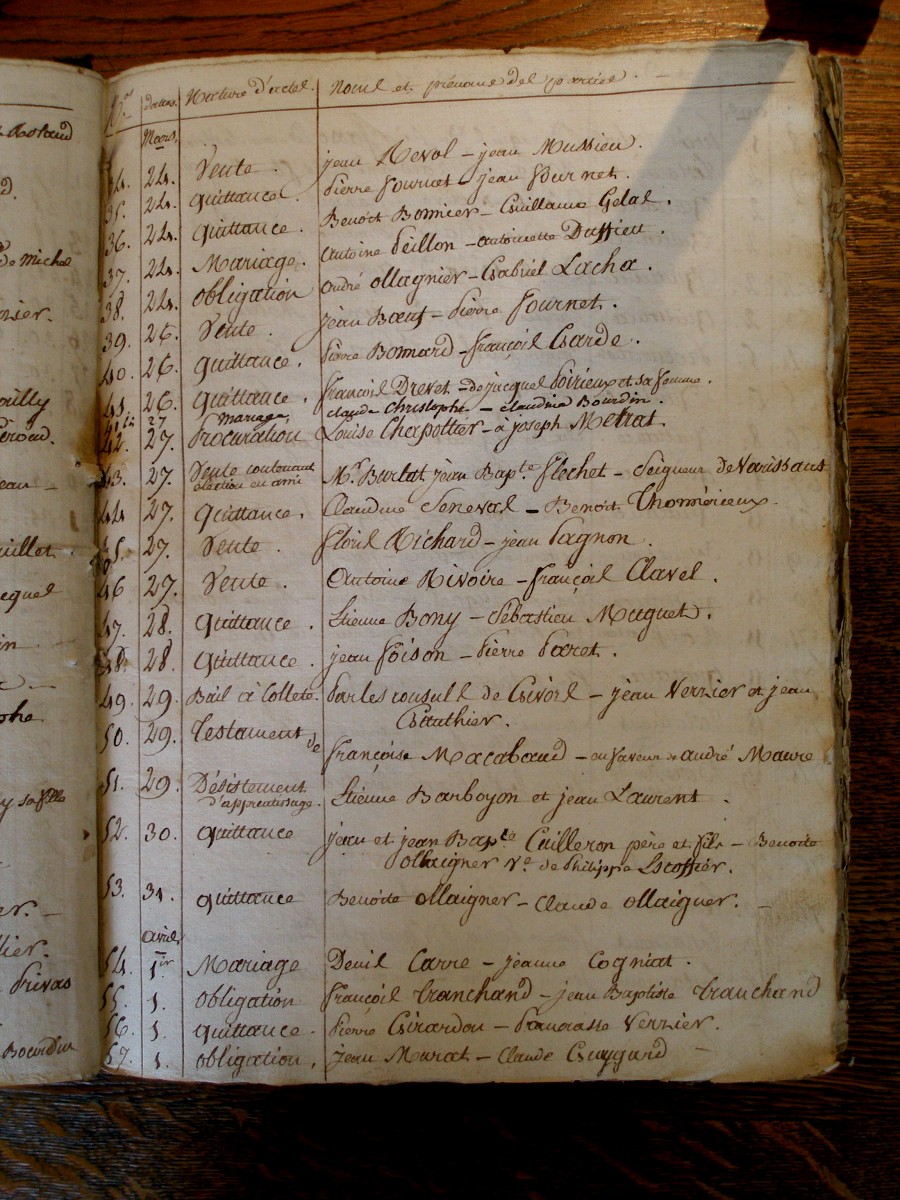 Rostand
de Michel
nier.
ouilly
éroud.
eau
uillet.
equel
in
phe
y sa fille
er.
lier.
Privas
Bourdin
Nos dates Nature d'actes. Noms et prénoms des parties.
Mars
34. 24. Vente. jean Revol - jean Mussieu.
35. 24. Quittances. Pierre Fournet - jean Fournet.
36. 24. Quittance. Benoit Bonnier - Guillaume Gelas.
37. 24. Mariage. Antoine Peillon - Antoinette Dussieu.
38. 24. Obligation André Ollagnier - Gabriel Lacha.
39. 26. Vente. jean Boeuf - Pierre Fournet.
40. 26. Quittance. Pierre Bonnard - françois Garde.
41. 26. Quittance. françois Drevet - de jacques Poirieux et sa femme.
27 Mariage, claude Christophe - claudine Bourdin.
42. 27. Procuration Louise Chapottier - à joseph Metrat.
43. 27. Vente contenant élection en ami Mr. Burlat jean Bapte. flechet - Seigneur de Varissans
44 27. Quittance. Claudine Seneval - Benoit Thomérieux.
45. 27. Vente. fleuri Richard - jean Pagnon.
46 27. Vente. Antoine Rivoire - françois Clavel.
47. 28. Quittance. Etienne Bony - Sébastien Maguet.
48. 28. Quittance. jean Poison - Pierre Paret.
49. 29. Bail à Collete. Par les consuls de Givors - jean Verzier et jean
Gauthier.
50. 29. Testament de
françoise Macabaud - en faveur de andré Maure
51. 29. Désistement d'apprentissage. Etienne Barboyon et jean Laurent.
52. 30. Quittance jean et jean Bapte Cailleron père et fils - Benoite
Ollaigner Ve. de Philippe Escoffier.
53. 31. Quittance Benoite Ollaigner - Claude Ollaigner.
avril
54. 1er Mariage Denis Carre - jeanne Cogniat.
55. 1. Obligation françois Tranchand - jean Baptiste Tranchand
56. 1. Quittance. Pierre Girardon - Pancrasse Verzier.
57. 1. Obligation, jean Marcat - Claude Guygard